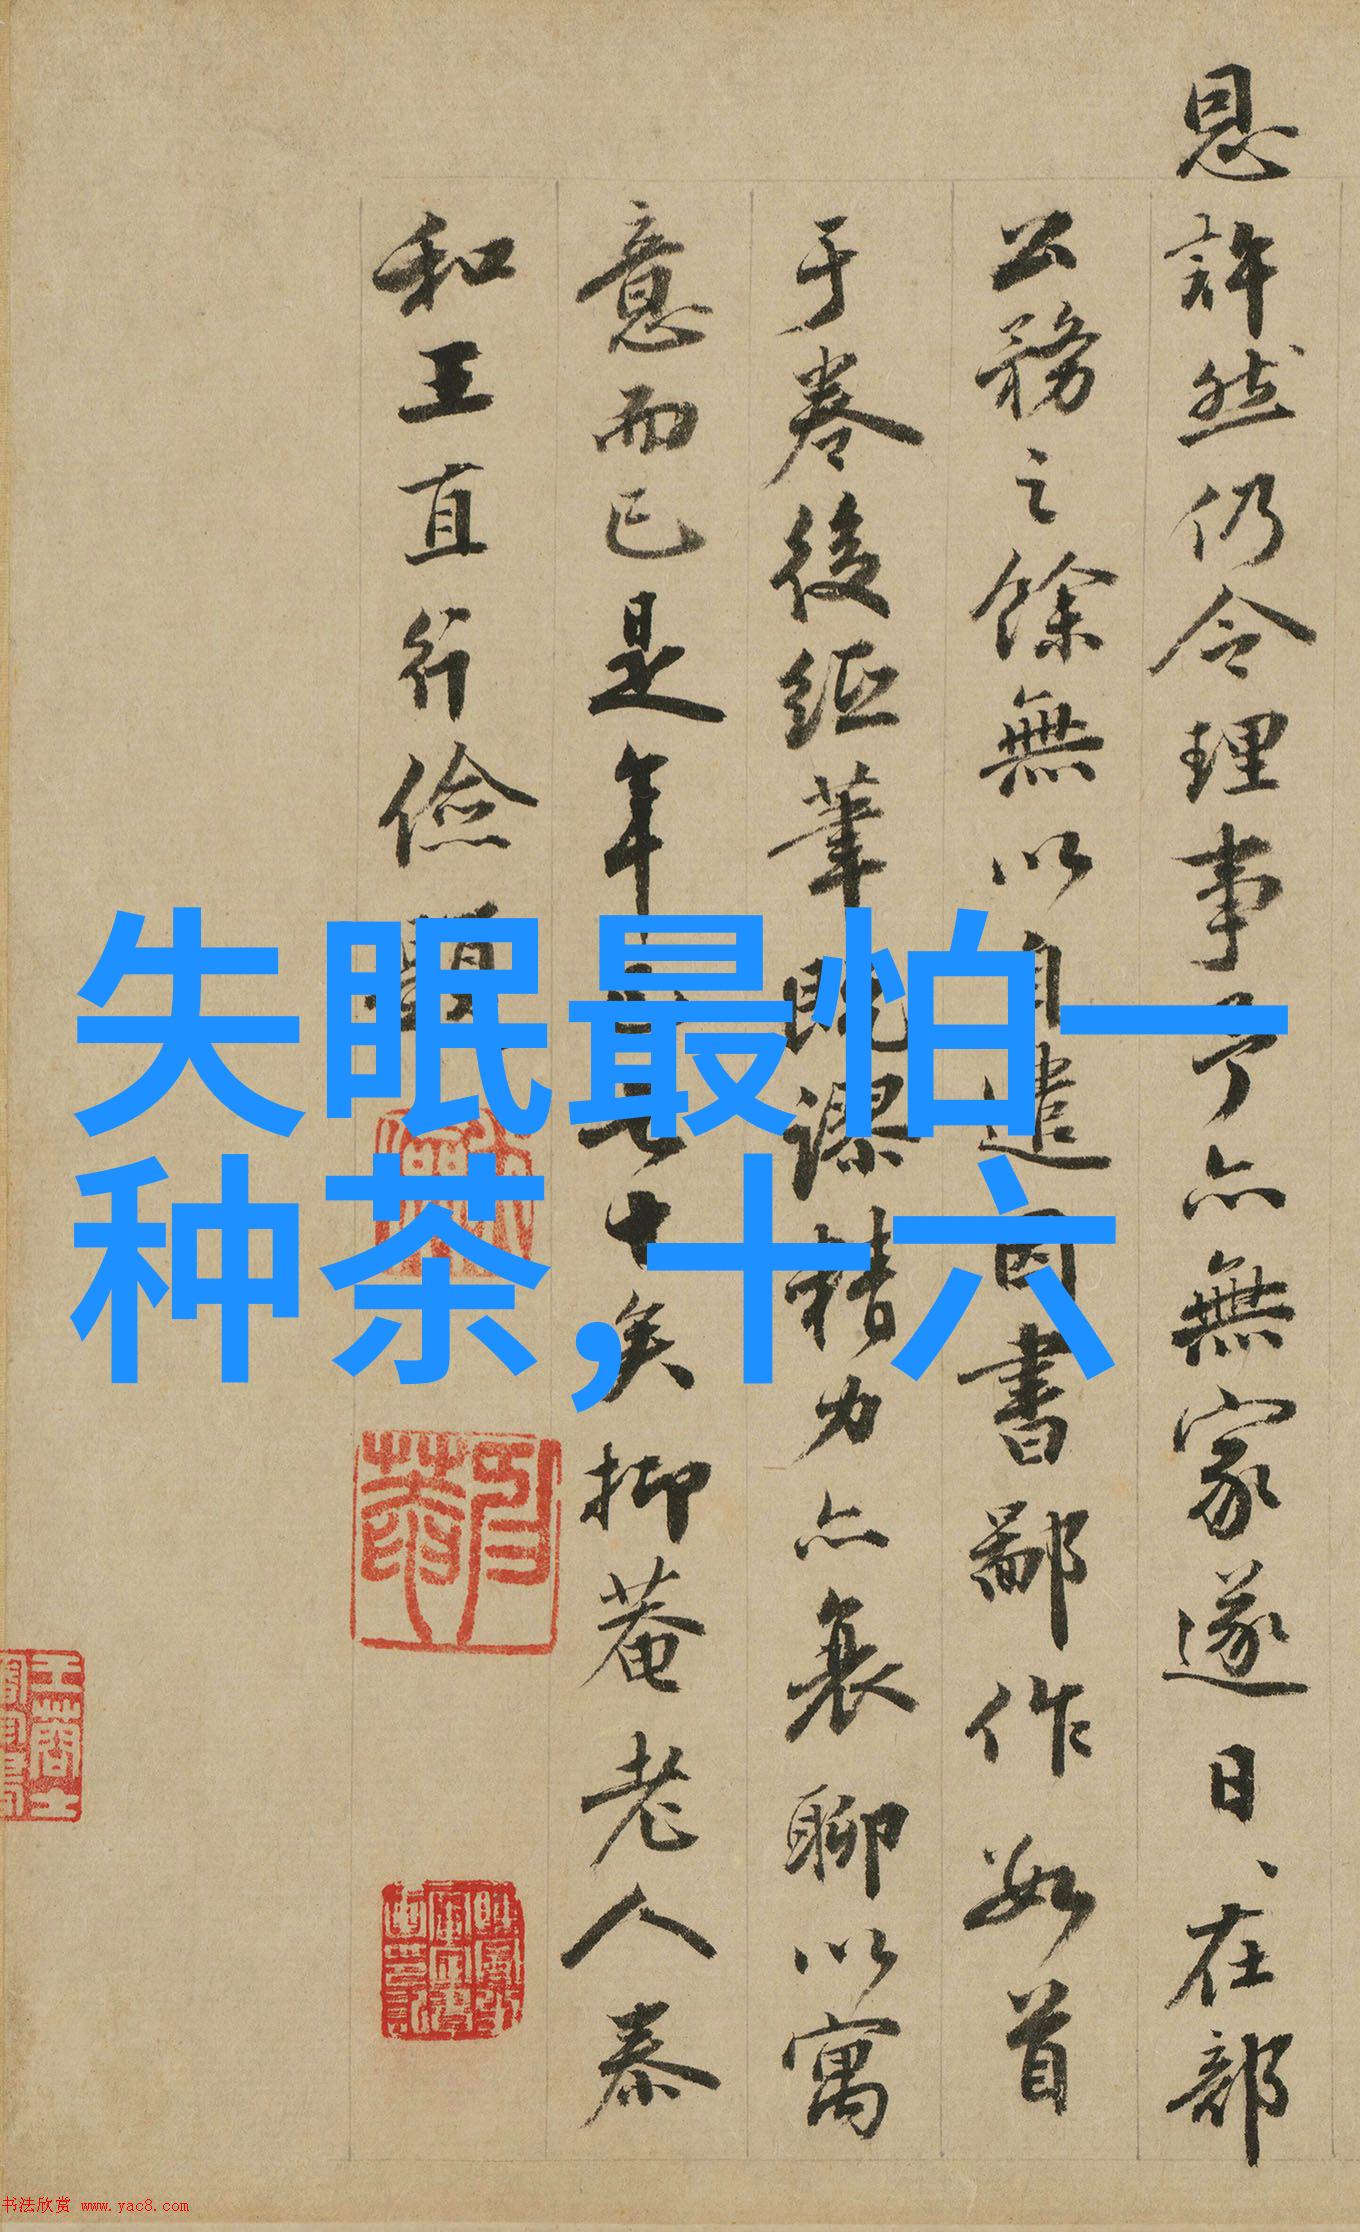 恩許然仍令理事事了亦無家遂日、在部
公務之餘無以自遣因書鄙作数首
于卷後紙筆既謬精力亦衰聊以寓
意而已是年
十矣抑菴老人泰
和王直行儉
失眠最怕一
种茶,十六
书法欣赏 www.yac8.com